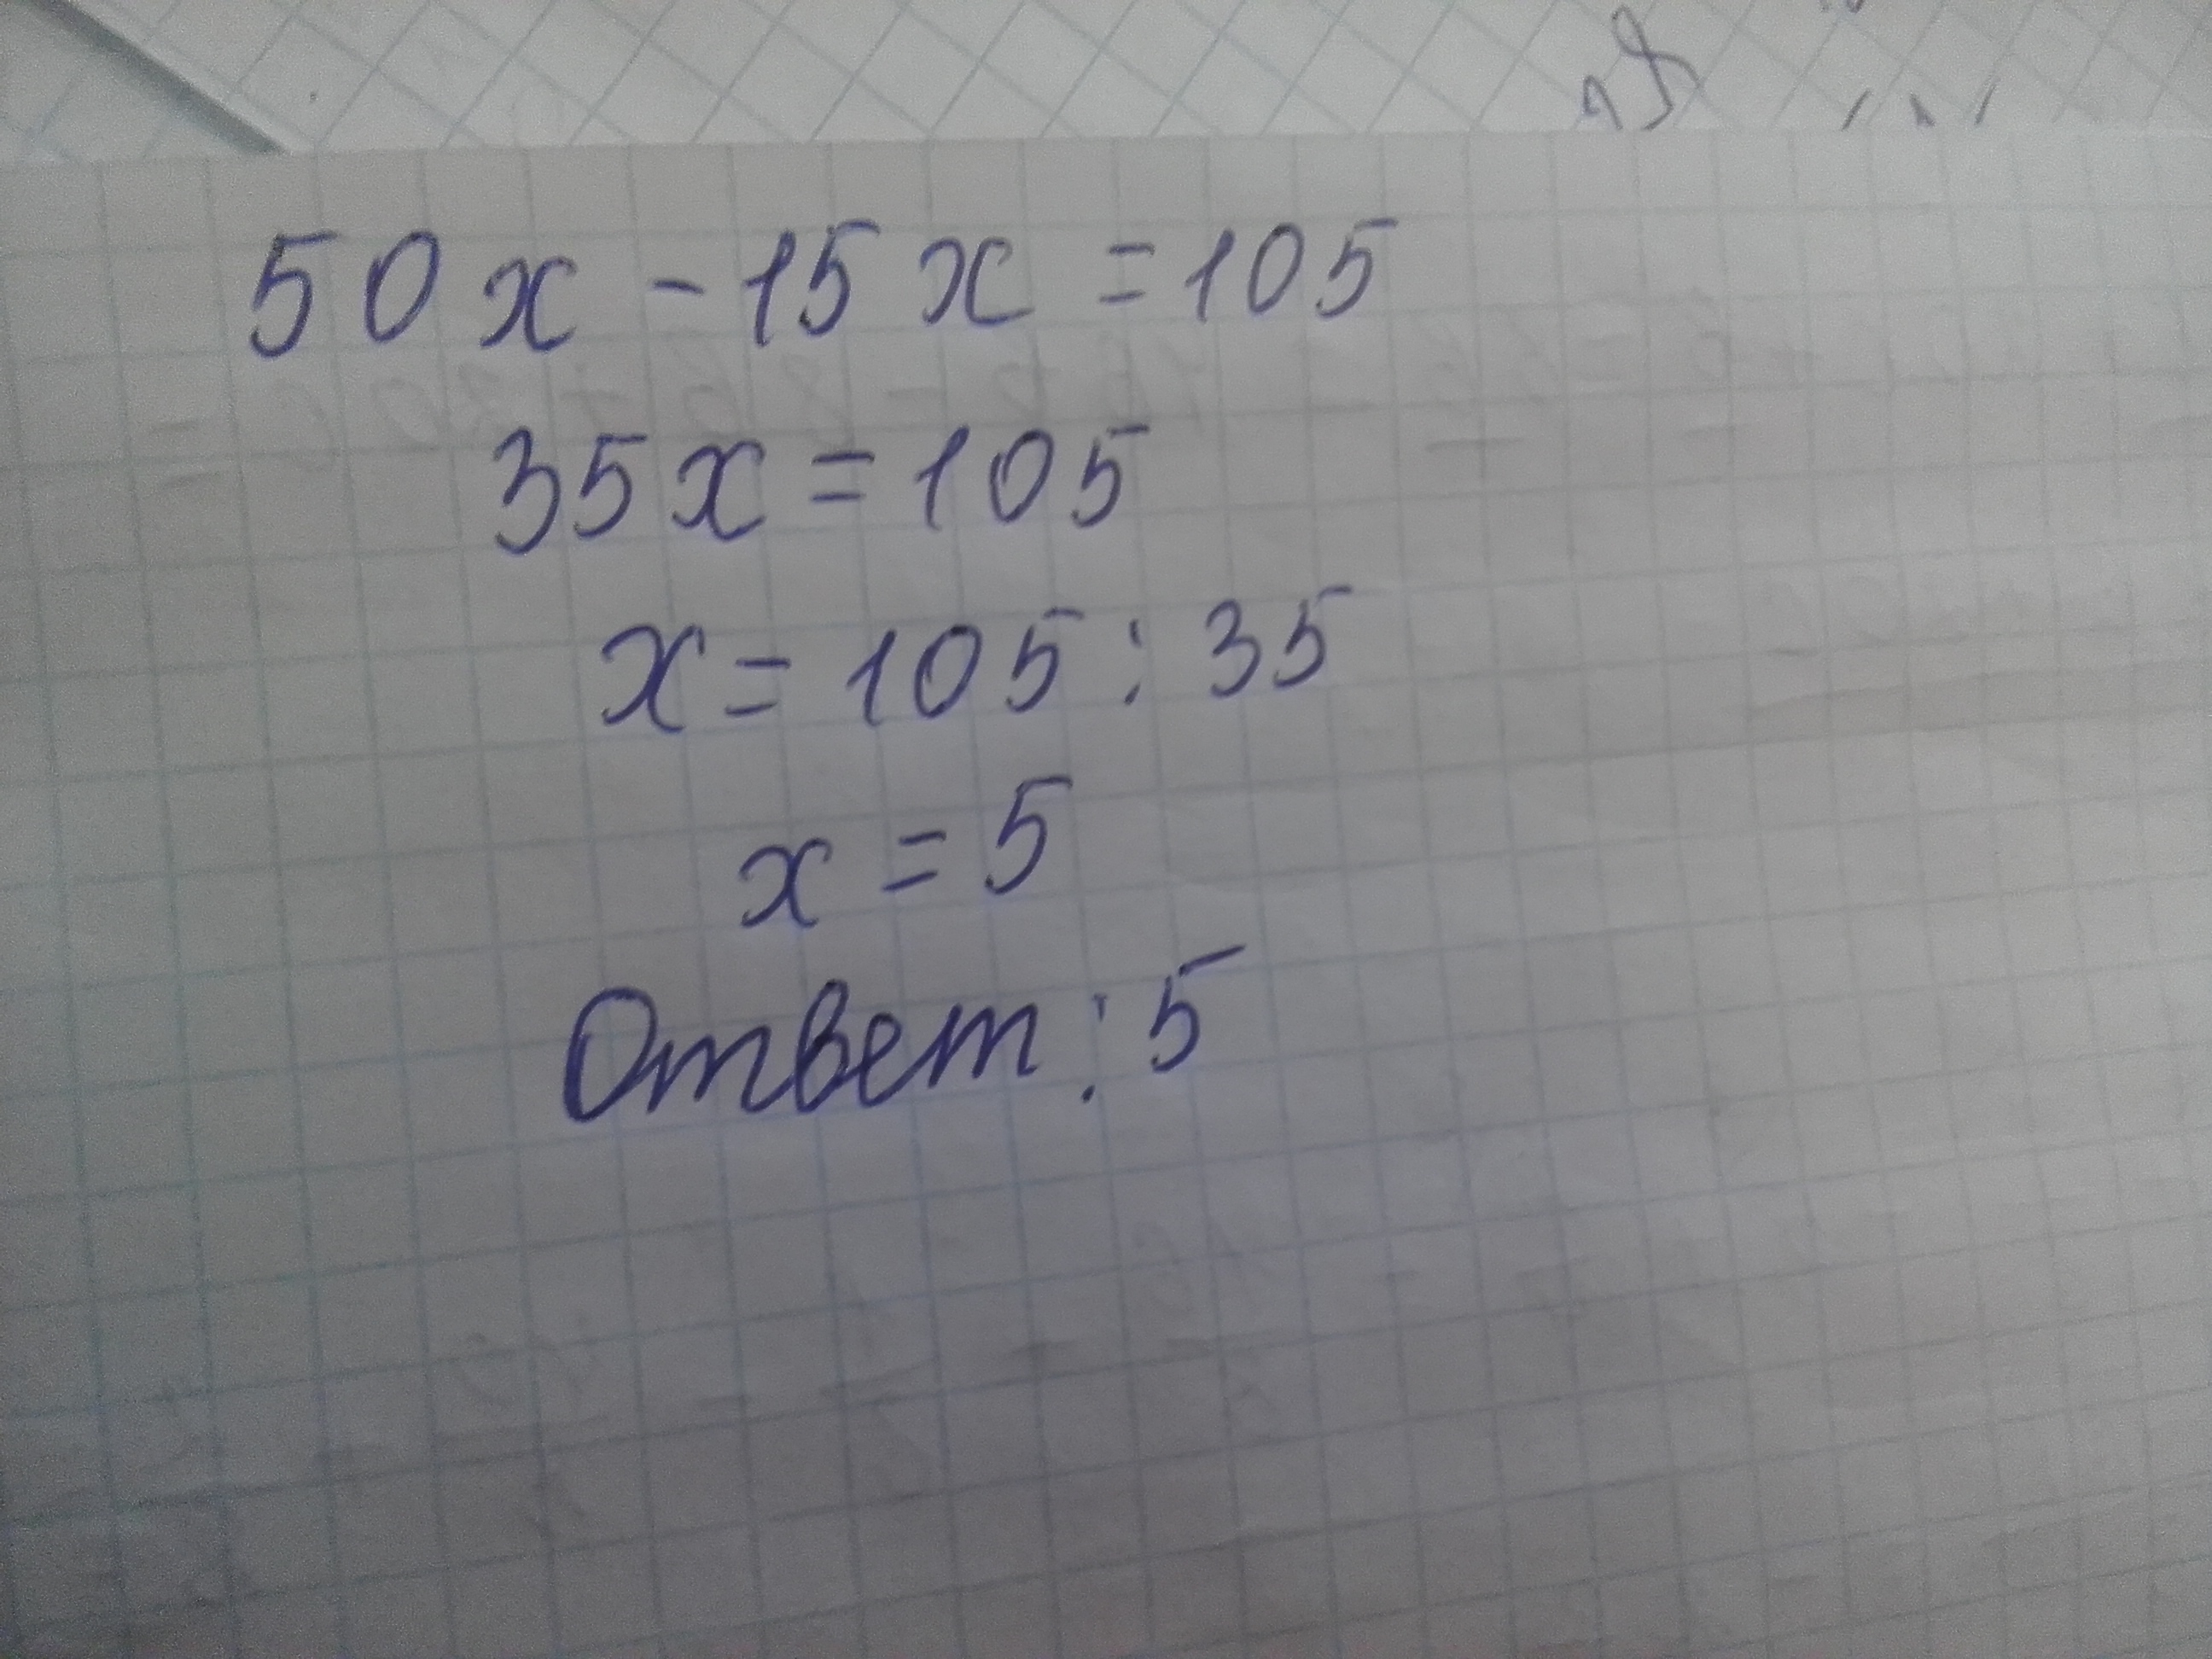 50x - 15x = 105
35x = 105
x = 105 : 35
x = 5
Ответ: 5